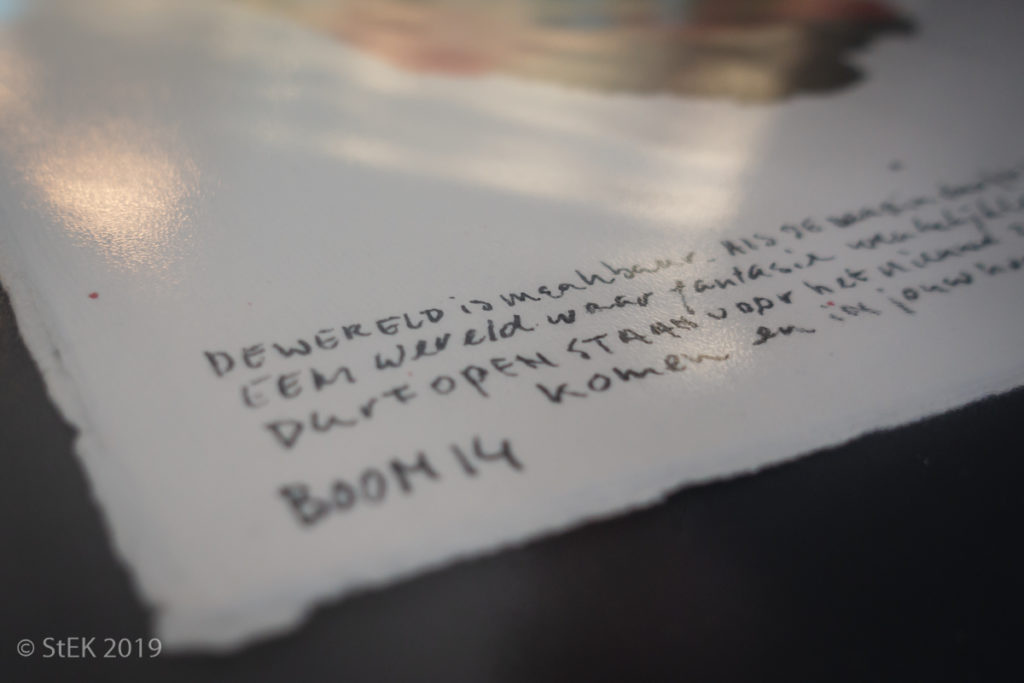 DE WERELD is maakbaar. ALS JE
EEN wereld waar fantasie werkelijkheid
Durf OPEN STAAN voor het niemand
komen en in jouw
BOOM 14
© StEK 2019